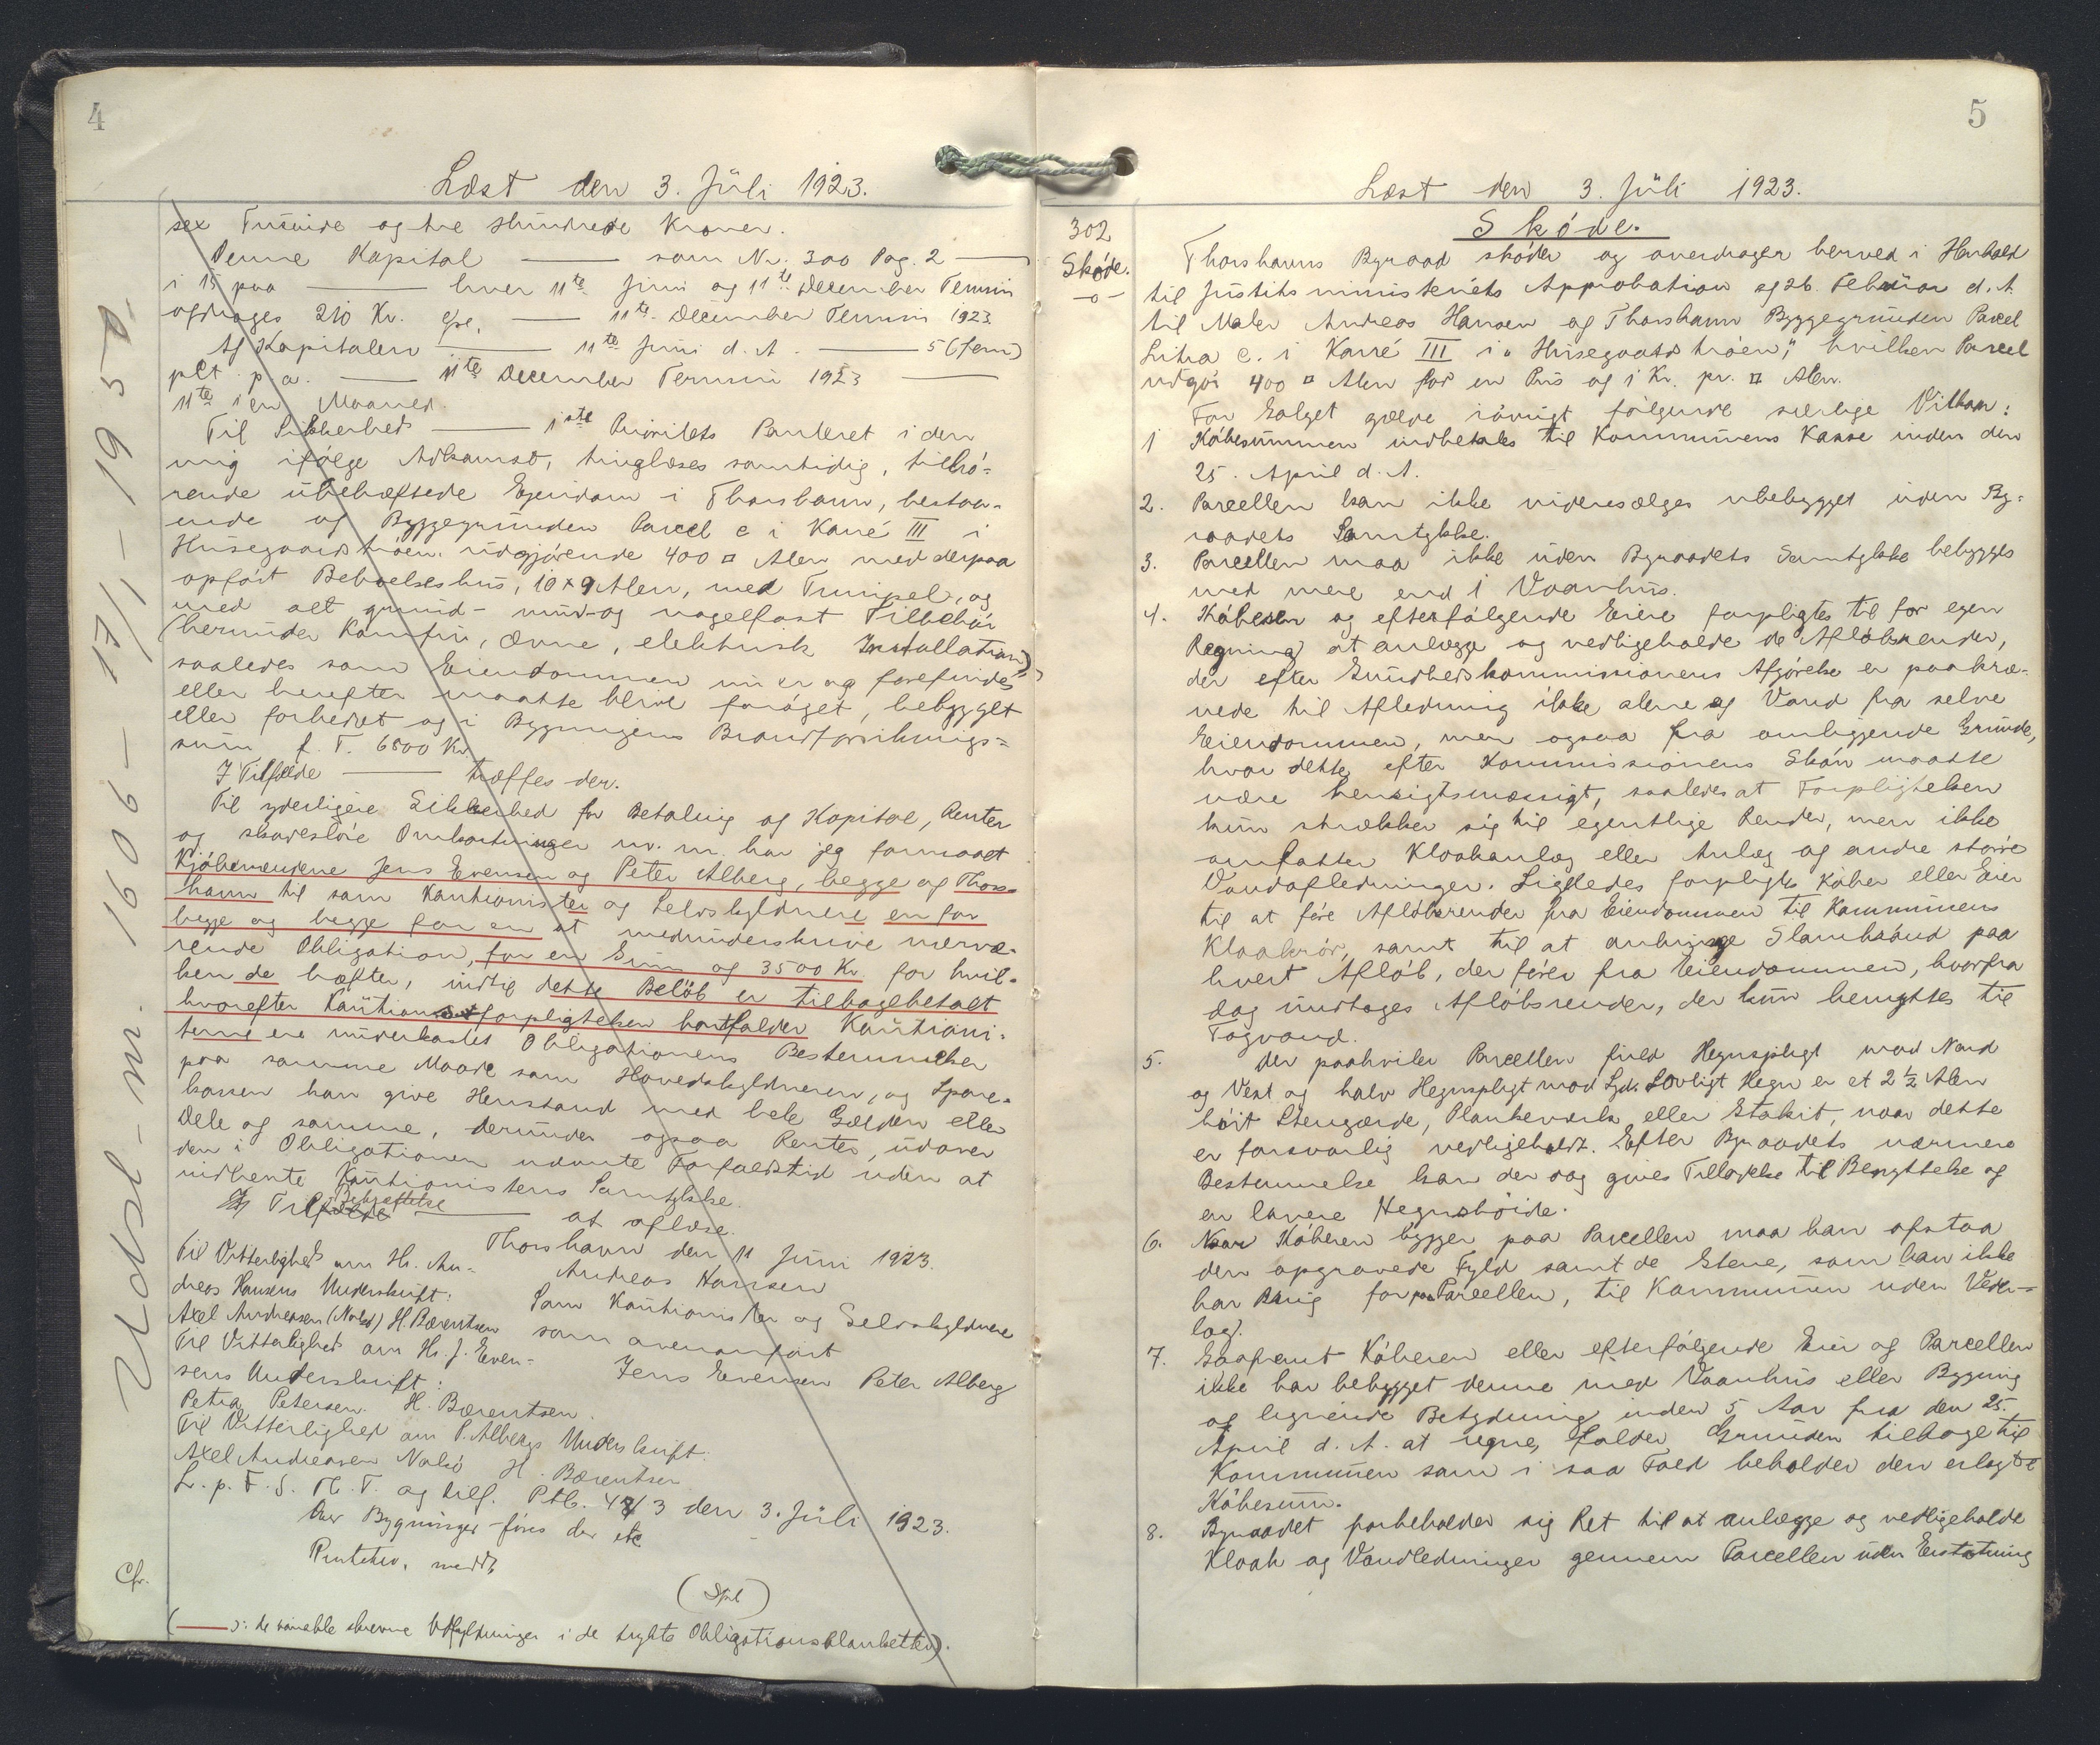 4
Læst den 3. Jüli 1923.
sex Tusinde og tre Hundrede Kroner.
Denne Kapital ——— som Nr. 300 Pag. 2 ———
i 15 paa ——— hver 11te Juni og 11te December Termin
afdrages 210 Kr. ——— 11te December Termin 1923
Af Kapitalen ——— 11te Juni d. A. ——— 5 (fem)
pCt p. a. ——— 11te December Termin 1923 ———
11te i en Maaned.
Til Sikkerhed ——— 1ste Prioritets Panteret i den
mig ifölge Adkomst, tinglæses samtidig, tilhö-
rende übehæftede Ejendom i Thorshavn, bestaa-
ende af Byggegrunden Parcel c i Karré III i
Husegaardströen, udgjörende 400 ¤ Alen med derpaa
opfört Beboelseshus, 10 x 9 Alen, med Trempel, og
med alt grund- mur- og nagelfast Tilbehör
(herunder Komfur, Ovne, elektrisk Installation),
saaledes som Eiendommen nu er og forefindes
eller herefter maatte blive foröget, bebygget
eller forbedret og i Bygningens Brandforsikrings=
sum p. T. 6800 Kr.
I Tilfælde ——— træffes der.
Til yderligere Sikkerhed for Betaling af Kapital, Renter
og skadeslöse Omkostninger m. m. har jeg formaaet
Kjöbmændene Jens Evensen og Peter Alberg, begge af Thors-
havn til som Kautionister og Selvskyldnere en for
begge og begge for en at medunderskrive nærvæ-
rende Obligation, for en Sum af 3500 Kr. for hvil-
ken de hæfter, indtil dette Belöb er tilbagebetalt
hvorefter Kautionsforpligtelsen bortfalder Kautioni-
sterne ere underkastet Obligationens Bestemmelser
paa samme Maade som Hovedskyldneren, og Spare-
kassen kan give Henstand med hele Gælden eller
Dele af samme, derunder ogsaa Renter, udover
den i Obligationen nævnte Forfaldstid uden at
indhente Kautionistens Samtykke.
Til Bekræftelse ——— at aflæse.
Thorshavn den 11 Juni 1923.
Til Vitterlighed om Hr. An-
Andreas Hansen
dreas Hansens Underskrift:
Som Kautionister og Selvskyldnere
Axel Andreasen (Nolsö) H. Bærentsen
som ovenanfört
Til Vitterlighed om Hr. J. Even-
Jens Evensen Peter Alberg
sens Underskrift:
Petra Petersen. H. Bærentsen.
Til Vitterlighed om P. Albergs Underskrift:
Axel Andreasen Nolsö H. Bærentsen
L. p. F. S. M. T. og tilf. Ptb. 473 den 3. Jüli 1923.
Over Bygninger föres der etc
Cfr.
(——— ɔ: de variable skrevne Udfyldninger i de trykte Obligationsblanketter).
Udsl-nr. 1606 - 17/1 - 1950
5
Læst den 3. Jüli 1923.
302
Sköde.
Sköde.
-o-
Thorshavns Byraad sköder og overdrager herved i Henhold
til Justitsministeriets Approbation af 26. Februar d. A.
til Maler Andreas Hansen af Thorshavn Byggegrunden Parcel
Litra c. i Karré III i „Husegaardströen", hvilken Parcel
udgör 400 ¤ Alen for en Pris af 1 Kr. pr. ¤ Alen.
For Salget gælde iövrigt fölgende særlige Vilkaar:
1 Köbesummen indbetales til Kommunens Kasse inden den
25. April d. A.
2. Parcellen kan ikke videresælges ubebygget uden By-
raadets Samtykke.
3. Parcellen maa ikke uden Byraadets Samtykke bebygges
med mere end 1 Vaanhus.
4. Köberen og efterfölgende Eiere forpligtes til for egen
Regning at anlægge og vedligeholde de Aflöbsrender,
der efter Sundhedskommissionens Afgörelse er paakræ-
vede til Afledning ikke alene af Vand fra selve
Eiendommen, men ogsaa fra omliggende Grunde,
hvor dette efter Kommissionens Skön maatte
være hensigtsmæssigt, saaledes at Forpligtelsen
kun strækker sig til egentlige Render, men ikke
omfatter Kloakanlæg eller Anlæg af andre större
Vandafledninger. Ligeledes forpligtes Köber eller Eier
til at före Aflöbsrender fra Eiendommen til Kommunens
Kloakrör, samt til at anbringe Slambrönd paa
hvert Aflöb, der förer fra Eiendommen, hvorfra
dog undtages Aflöbsrender, der kun benyttes til
Tagvand.
5. Der paahviler Parcellen fuld Hegnspligt mod Nord
og Vest og halv Hegnspligt mod Syd. Lovligt Hegn er et 2 ½ Alen
höit Stengærde, Plankeværk eller Stakit, naar dette
er forsvarlig vedligeholdt. Efter Byraadets nærmere
Bestemmelse kan der dog gives Tilladelse til Benyttelse af
en lavere Hegnshöide.
6. Naar Köberen bygger paa Parcellen maa han afstaa
den opgravede Fyld samt de Stene, som han ikke
har Brug for paa Parcellen, til Kommunen uden Veder-
lag.
7. Saafremt Köberen eller efterfölgende Eier af Parcellen
ikke har bebygget denne med Vaanhus eller Bygning
af lignende Betydning inden 5 Aar fra den 25.
April d. A. at regne, falder Grunden tilbage til
Kommunen som i saa Fald beholder den erlagte
Köbesum.
8. Byraadet forbeholder sig Ret til at anlægge og vedligeholde
Kloak og Vandledninger gennem Parcellen uden Erstatning